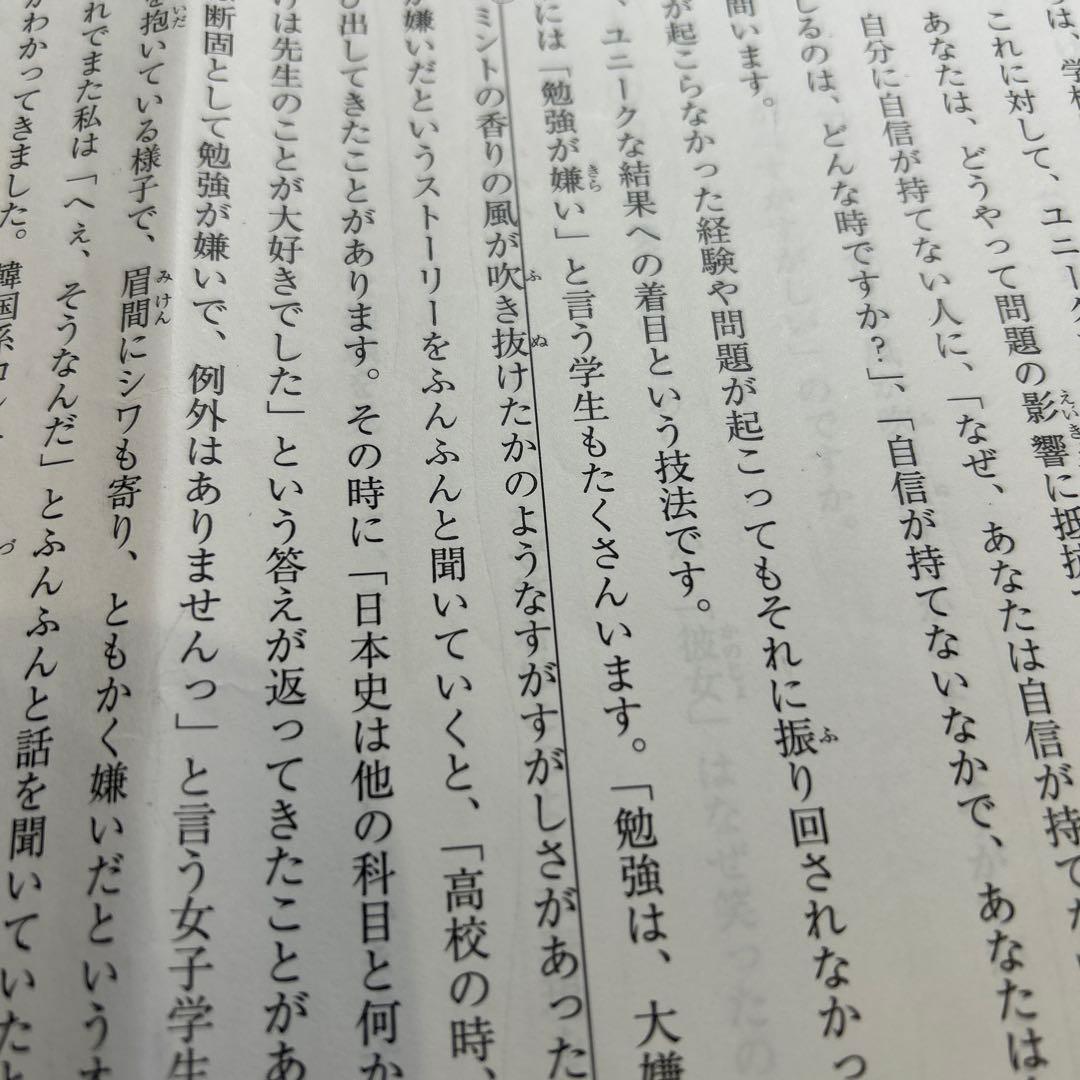 は、学校
これに対して、ユニーク
あなたは、どうやって問題の影響に抵抗
自分に自信が持てない人に、「なぜ、あなたは自信が持てた
じるのは、どんな時ですか?」、「自信が持てないなかで、あなたは
問います。
が起こらなかった経験や問題が起こってもそれに振り回されなかっ
、ユニークな結果への着目という技法です。
には「勉強が嫌い」と言う学生もたくさんいます。「勉強は、大嫌
ミントの香りの風が吹き抜けたかのようなすがすがしさがあった
が嫌いだというストーリーをふんふんと聞いていくと、「高校の時、
び出してきたことがあります。その時に、「日本史は他の科目と何か
けは先生のことが大好きでした」という答えが返ってきたことがあ
断固として勉強が嫌いで、例外はありませんっ」と言う女子学生
を抱いている様子で、眉間にシワも寄り、ともかく嫌いだという
れでまた私は「へぇ、そうなんだ」とふんふんと話を聞いていたと
がわかってきました。韓国系